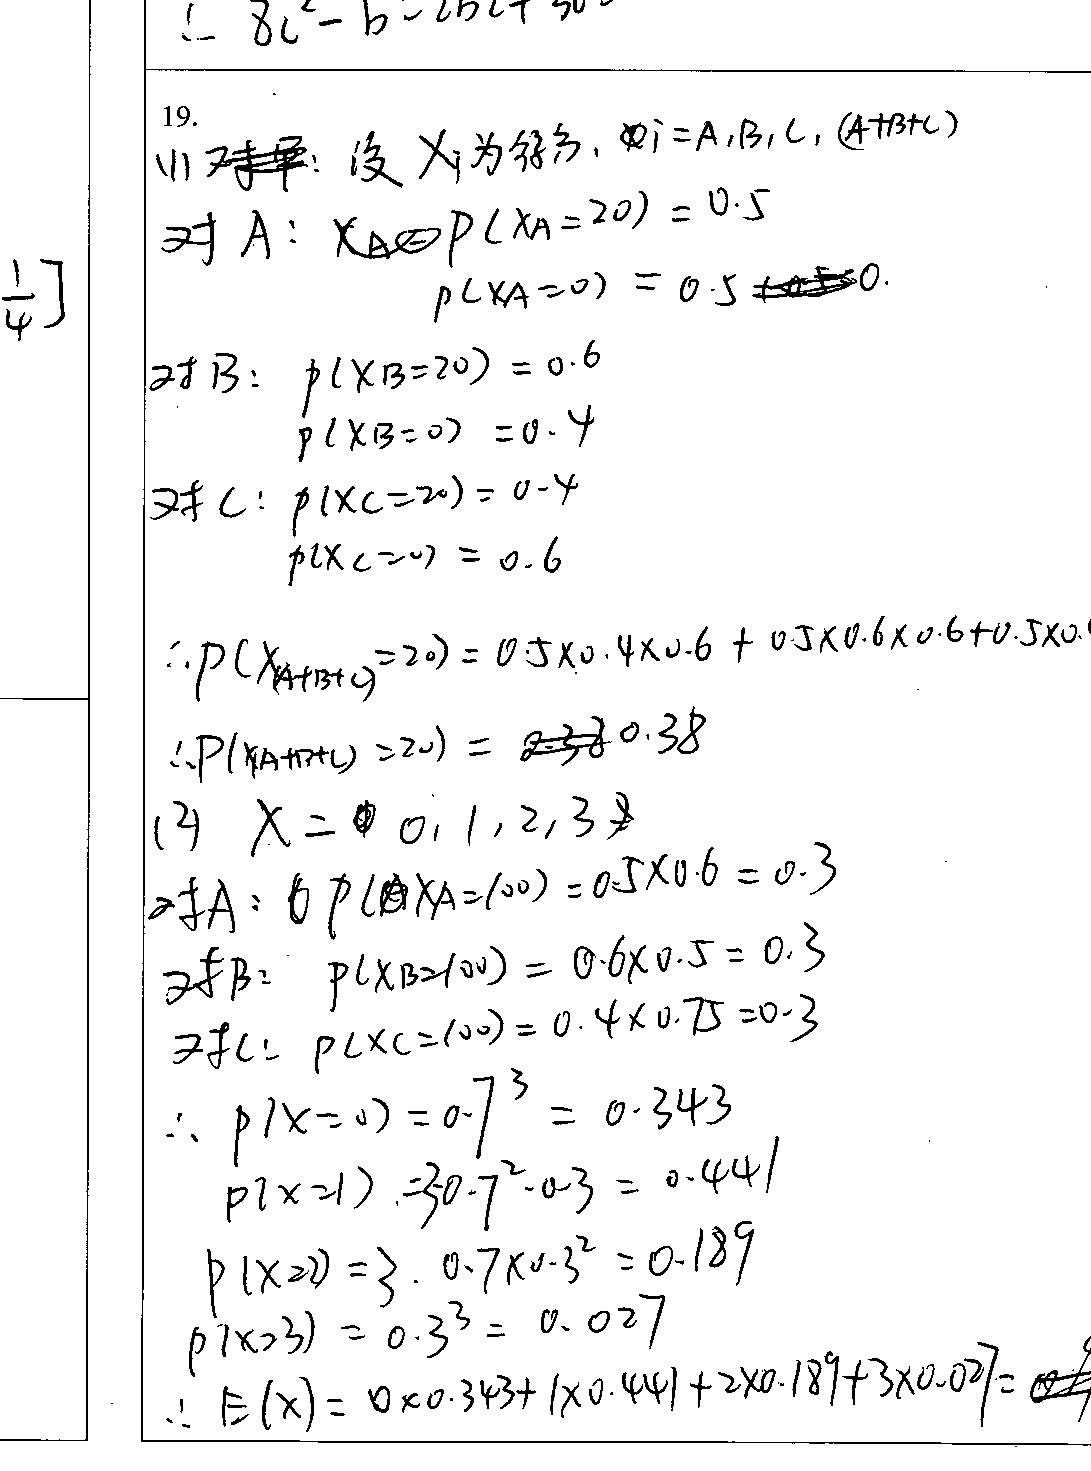 ∴ 8c² - b
19.
(1) 设 Xi 为得分, i = A, B, C, (A+B+C)
对 A: P(XA=20) = 0.5
P(XA=0) = 0.5 0.
1/4]
对 B: P(XB=20) = 0.6
P(XB=0) = 0.4
对 C: P(XC=20) = 0.4
P(XC=0) = 0.6
∴P(X(A+B+C)=20) = 0.5×0.4×0.6 + 0.5×0.6×0.6+0.5×0.
∴P(X(A+B+C)=20) = 0.38
(2) X = 0, 1, 2, 3
对A: P(XA=100) = 0.5×0.6 = 0.3
对B: P(XB=100) = 0.6×0.5 = 0.3
对C: P(XC=100) = 0.4×0.75=0.3
∴ P(X=0) = 0.7³ = 0.343
P(X=1) =3·0.7²·0.3 = 0.441
P(X=2) = 3·0.7×0.3² = 0.189
P(X=3) = 0.3³ = 0.027
∴ E(X) = 0×0.343+1×0.441+2×0.189+3×0.027=